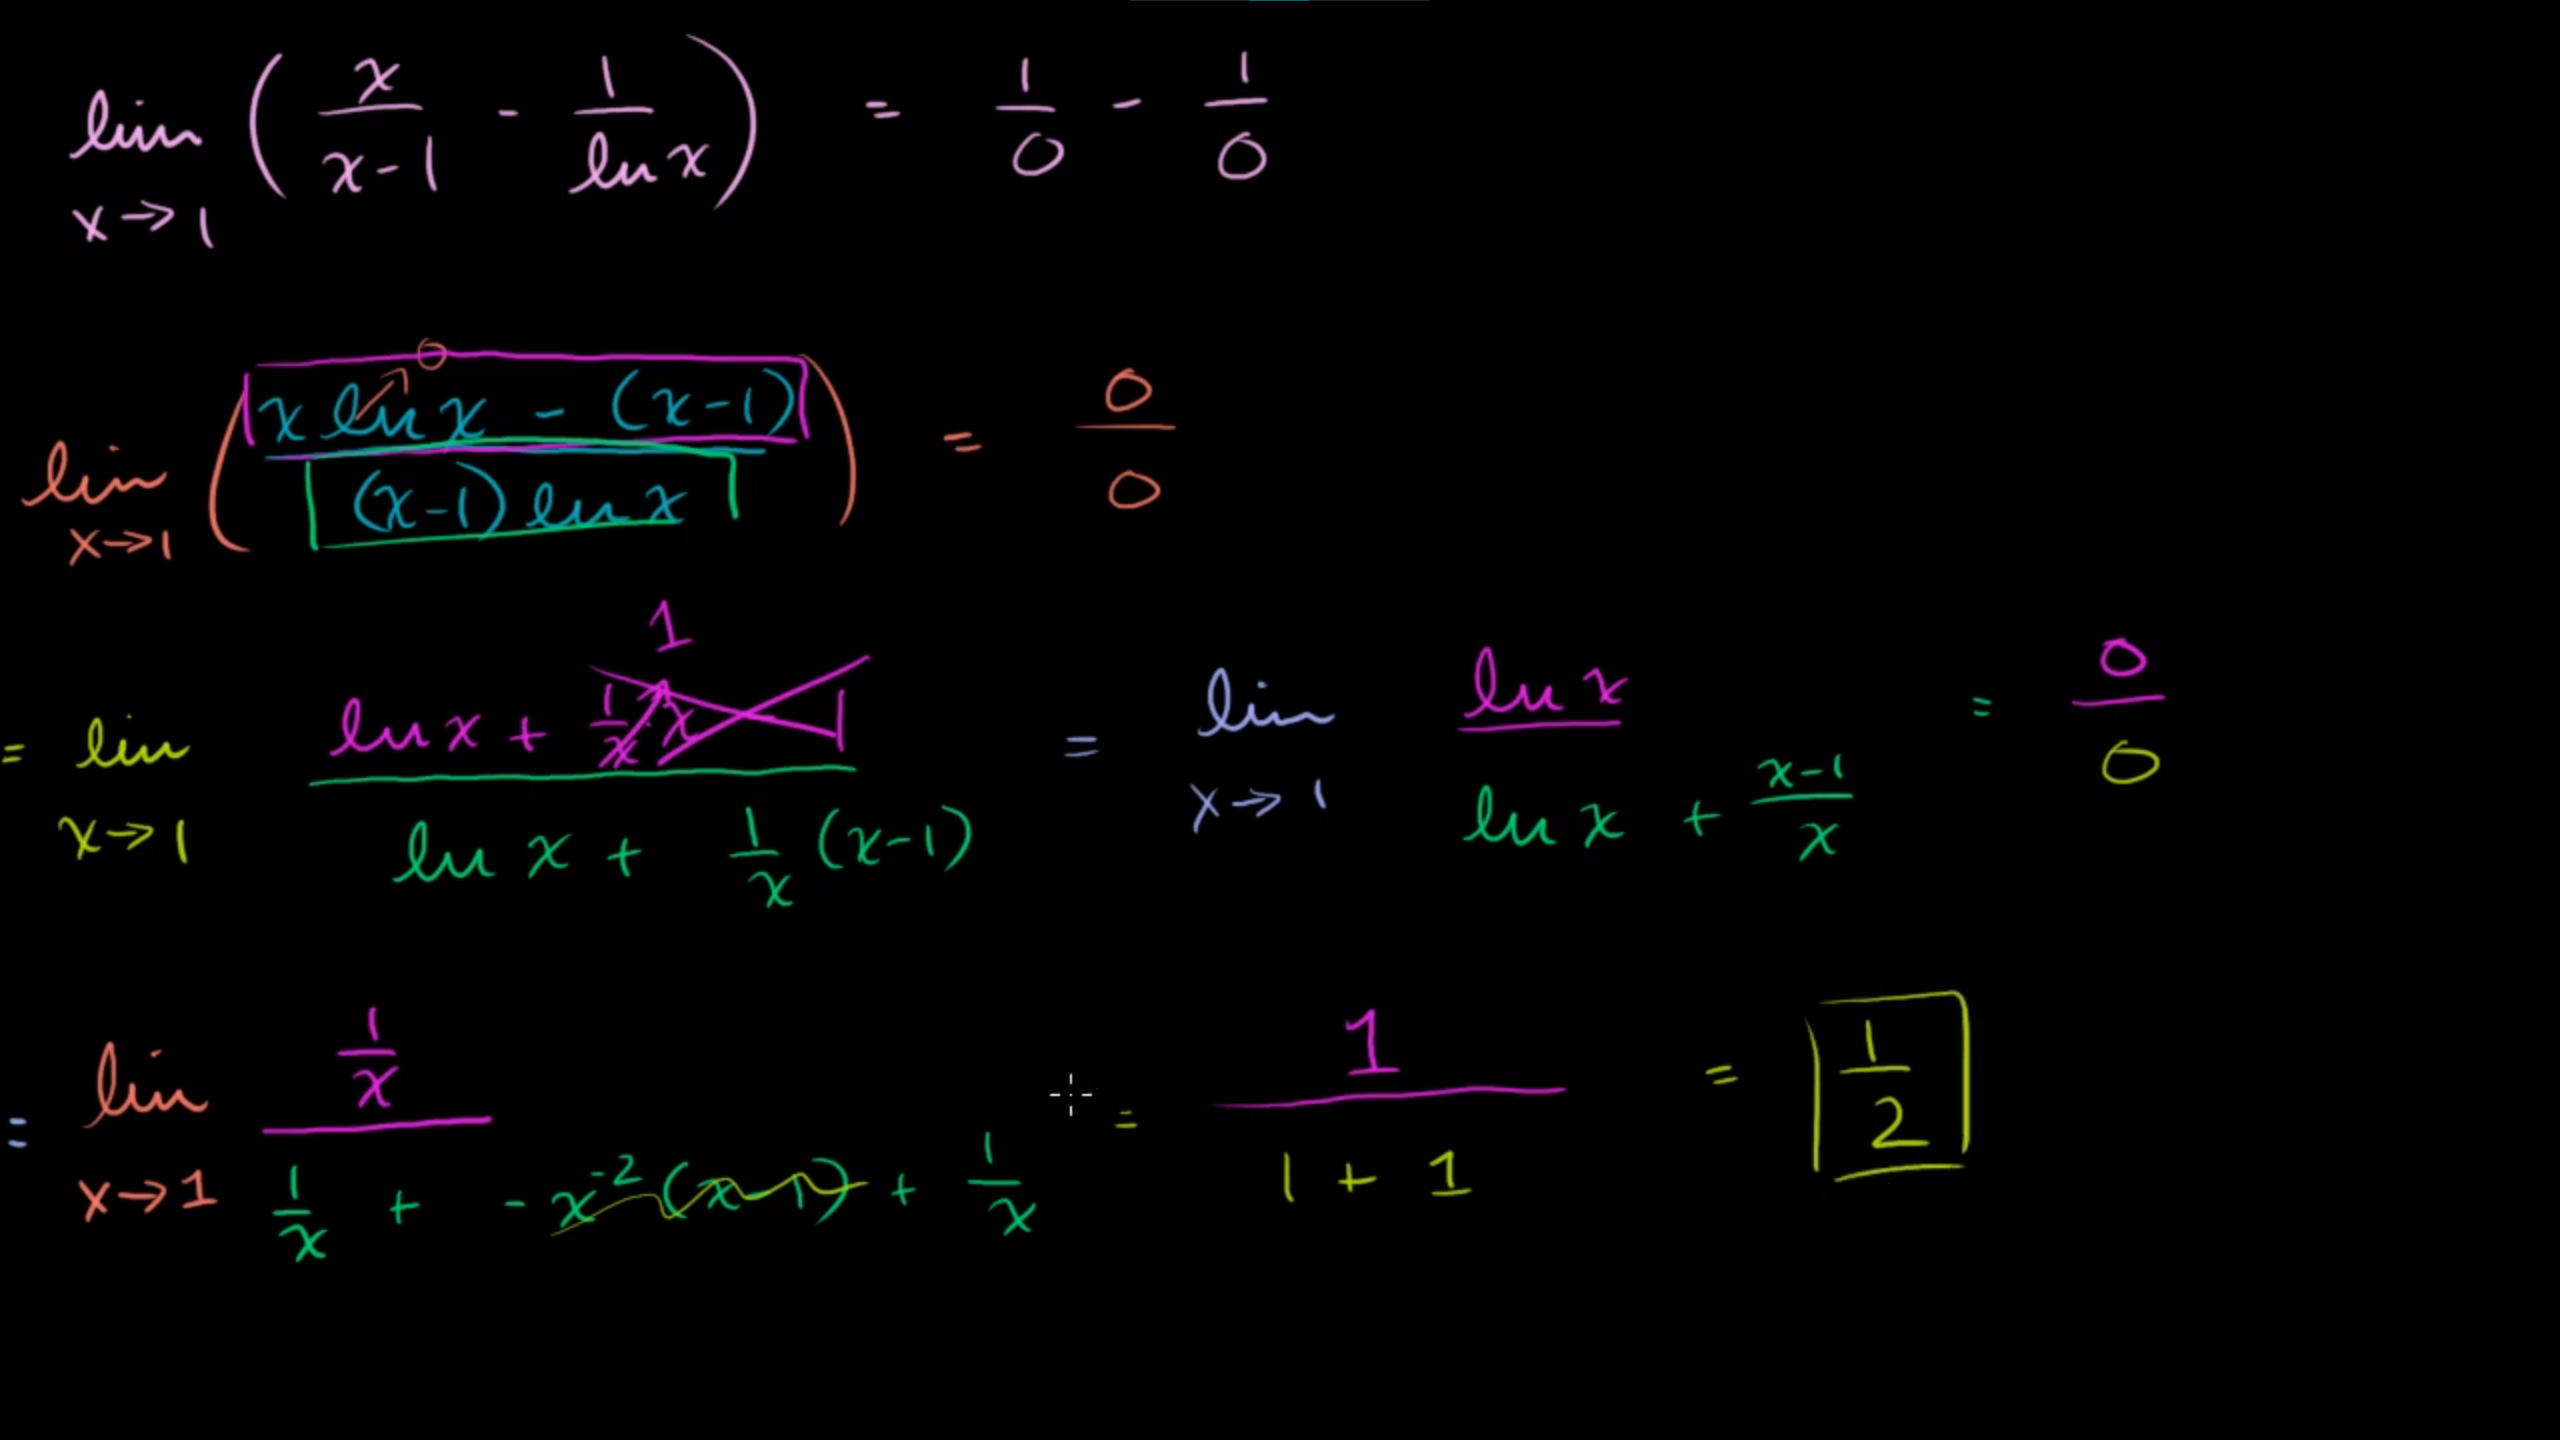 lim x→1 ( x/(x-1) - 1/(ln x) ) = 1/0 - 1/0
lim x→1 ( (x ln x - (x-1)) / ((x-1) ln x) ) = 0/0
0
1
= lim x→1 (ln x + 1/x · x - 1) / (ln x + 1/x (x-1)) = lim x→1 (ln x) / (ln x + (x-1)/x) = 0/0
= lim x→1 (1/x) / (1/x + -x^-2 (x-1) + 1/x) = 1/(1+1) = 1/2